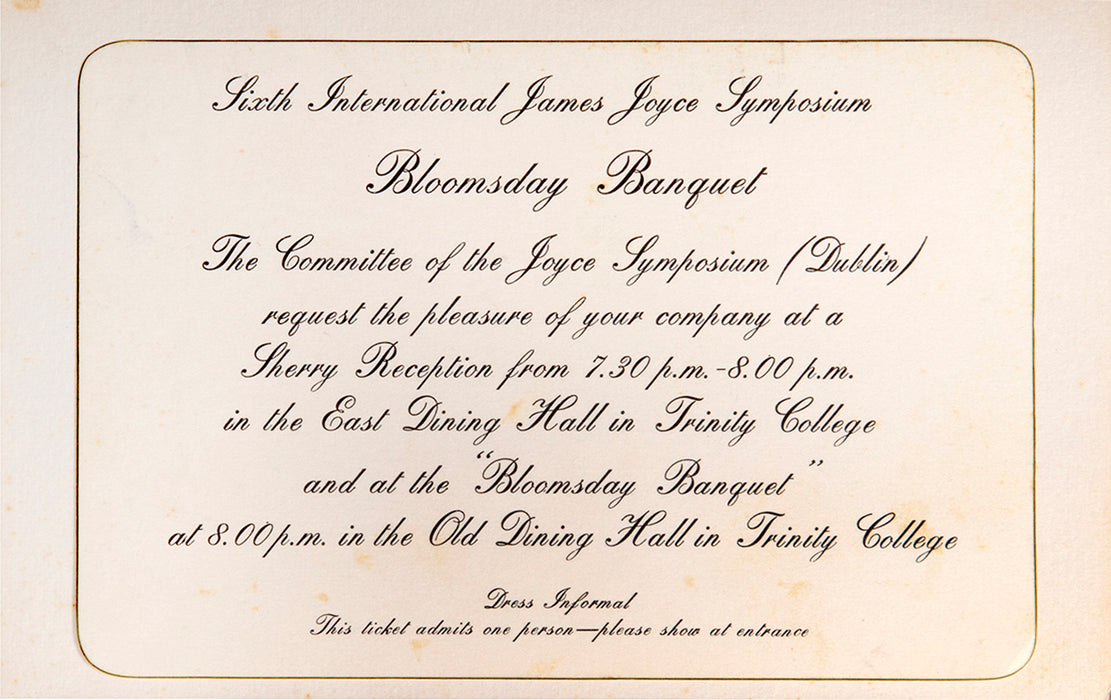 Sixth International James Joyce Symposium
Bloomsday Banquet
The Committee of the Joyce Symposium (Dublin)
request the pleasure of your company at a
Sherry Reception from 7.30 p.m.-8.00 p.m.
in the East Dining Hall in Trinity College
and at the “Bloomsday Banquet”
at 8.00 p.m. in the Old Dining Hall in Trinity College
Dress Informal
This ticket admits one person—please show at entrance